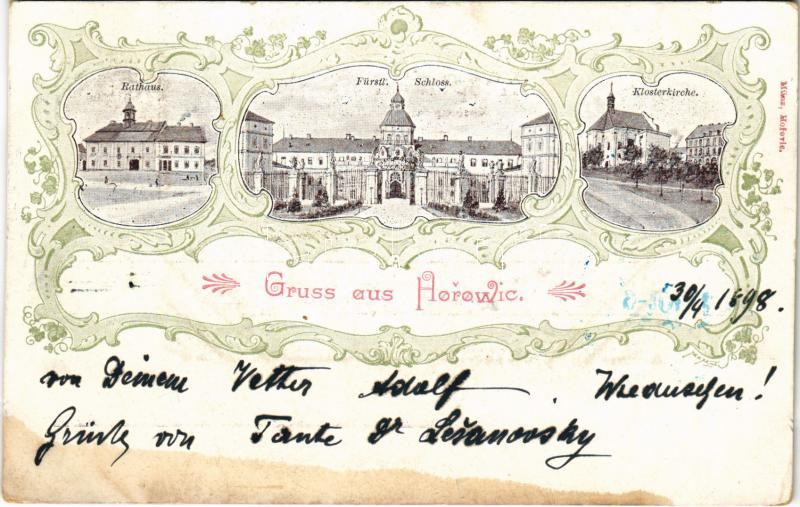 Rathaus.
Fürstl. Schloss.
Klosterkirche.
Gruss aus Hořowic.
30/4 1898.
von Deinem Vetter Adolf. Wiedersehen!
Grüße von Tante Dr Lešanovsky